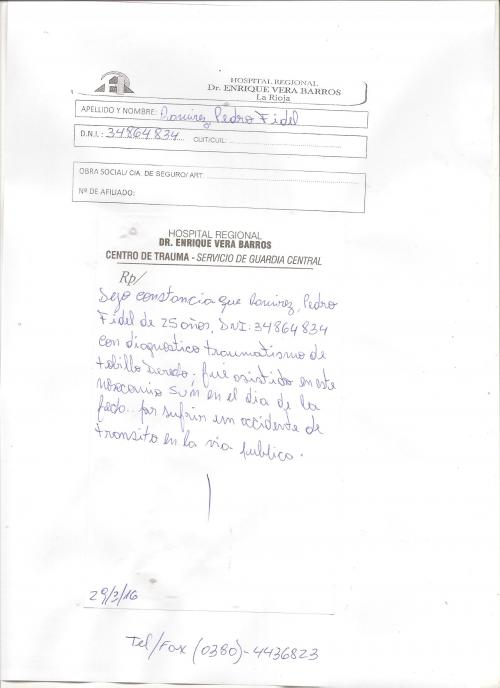 HOSPITAL REGIONAL
Dr. ENRIQUE VERA BARROS
La Rioja
APELLIDO Y NOMBRE: Ramirez, Pedro Fidel
D.N.I.: 34864834 CUIT/CUIL:
OBRA SOCIAL/ CIA. DE SEGURO/ ART:
Nº DE AFILIADO:
HOSPITAL REGIONAL
DR. ENRIQUE VERA BARROS
CENTRO DE TRAUMA - SERVICIO DE GUARDIA CENTRAL
Rp/
Dejo constancia que Ramirez, Pedro
Fidel de 25 años, DNI: 34864834
con diagnostico traumatismo de
tobillo Derecho. fue asistido en este
nosocomio en el dia de la
fecha.. por sufrir un accidente de
transito en la via publica.
29/3/16
Tel/Fax (0380)-4436823